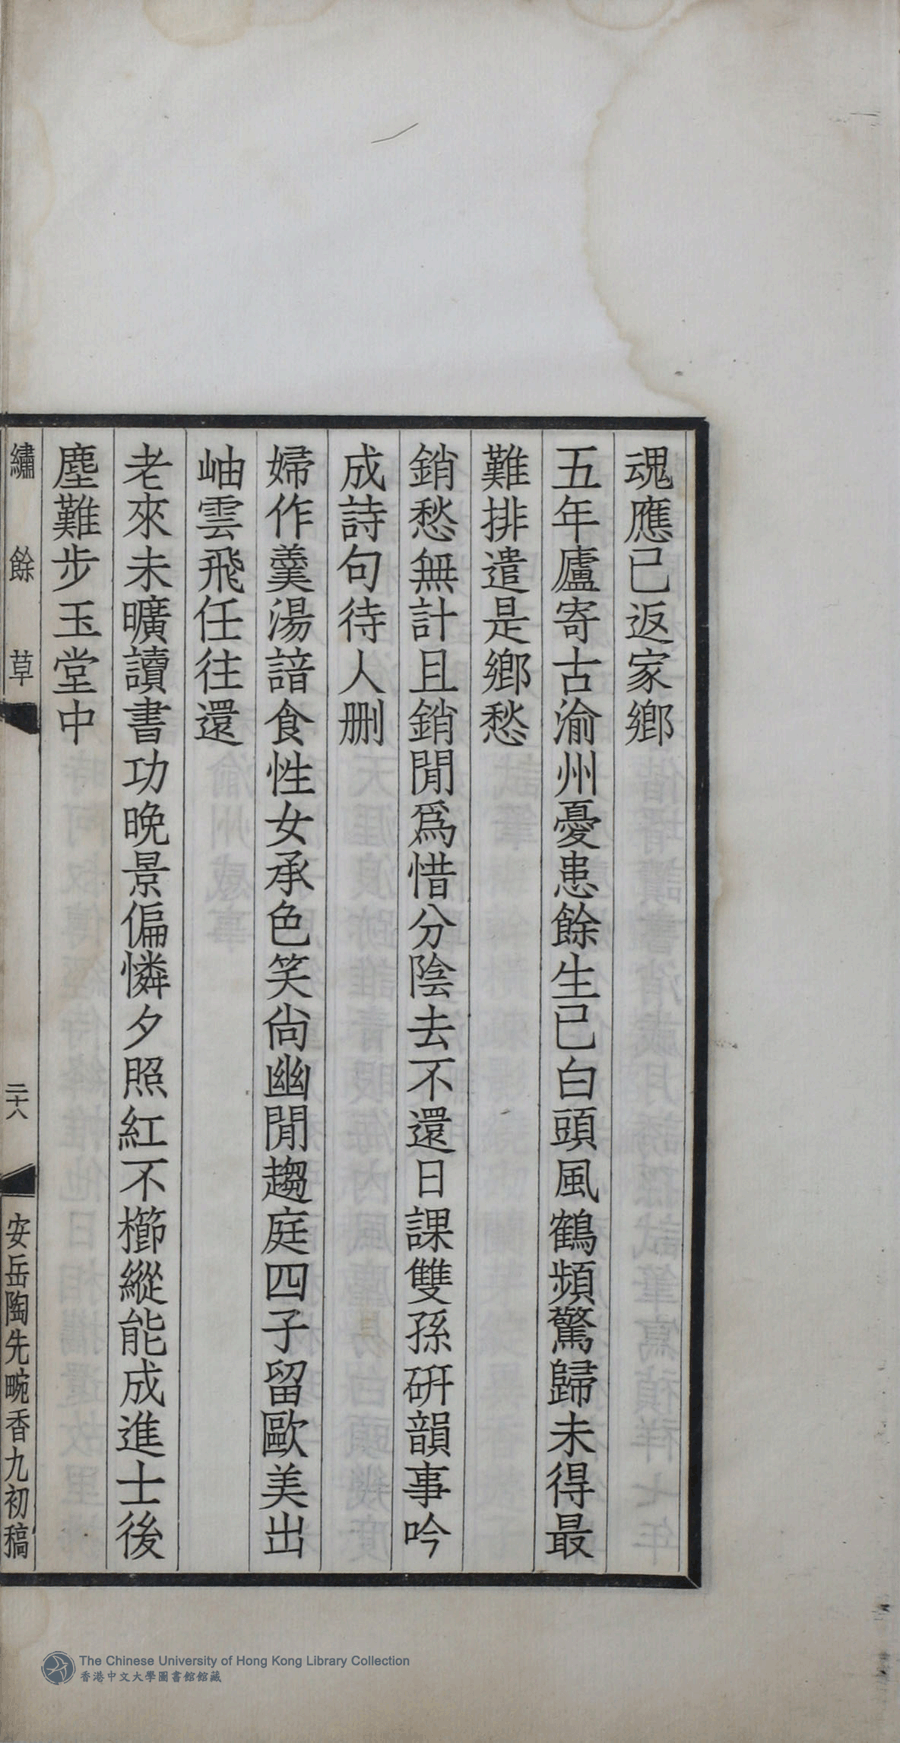 魂應已返家鄉
五年廬寄古渝州憂患餘生已白頭風鶴頻驚歸未得最
難排遣是鄉愁
銷愁無計且銷閒爲惜分陰去不還日課雙孫硏韻事吟
成詩句待人删
婦作羹湯諳食性女承色笑尙幽閒趨庭四子留歐美出
岫雲飛任往還
老來未曠讀書功晚景偏憐夕照紅不櫛縱能成進士後
塵難步玉堂中
繡餘草
二十八
安岳陶先畹香九初稿
The Chinese University of Hong Kong Library Collection
香港中文大學圖書館館藏